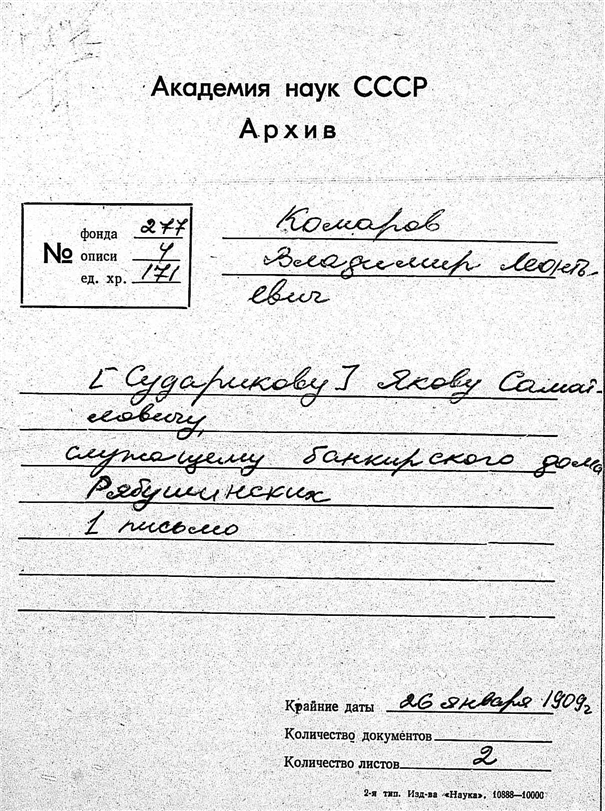 Академия наук СССР
Архив
№
фонда 277
описи 4
ед. хр. 171
Комаров
Владимир Леонть-
евич
[Сударикову] Якову Самой-
ловичу,
служащему банкирского дома
Рябушинских
1 письмо
Крайние даты 26 января 1909г
Количество документов
Количество листов 2
2-я тип. Изд-ва «Наука», 10888—10000